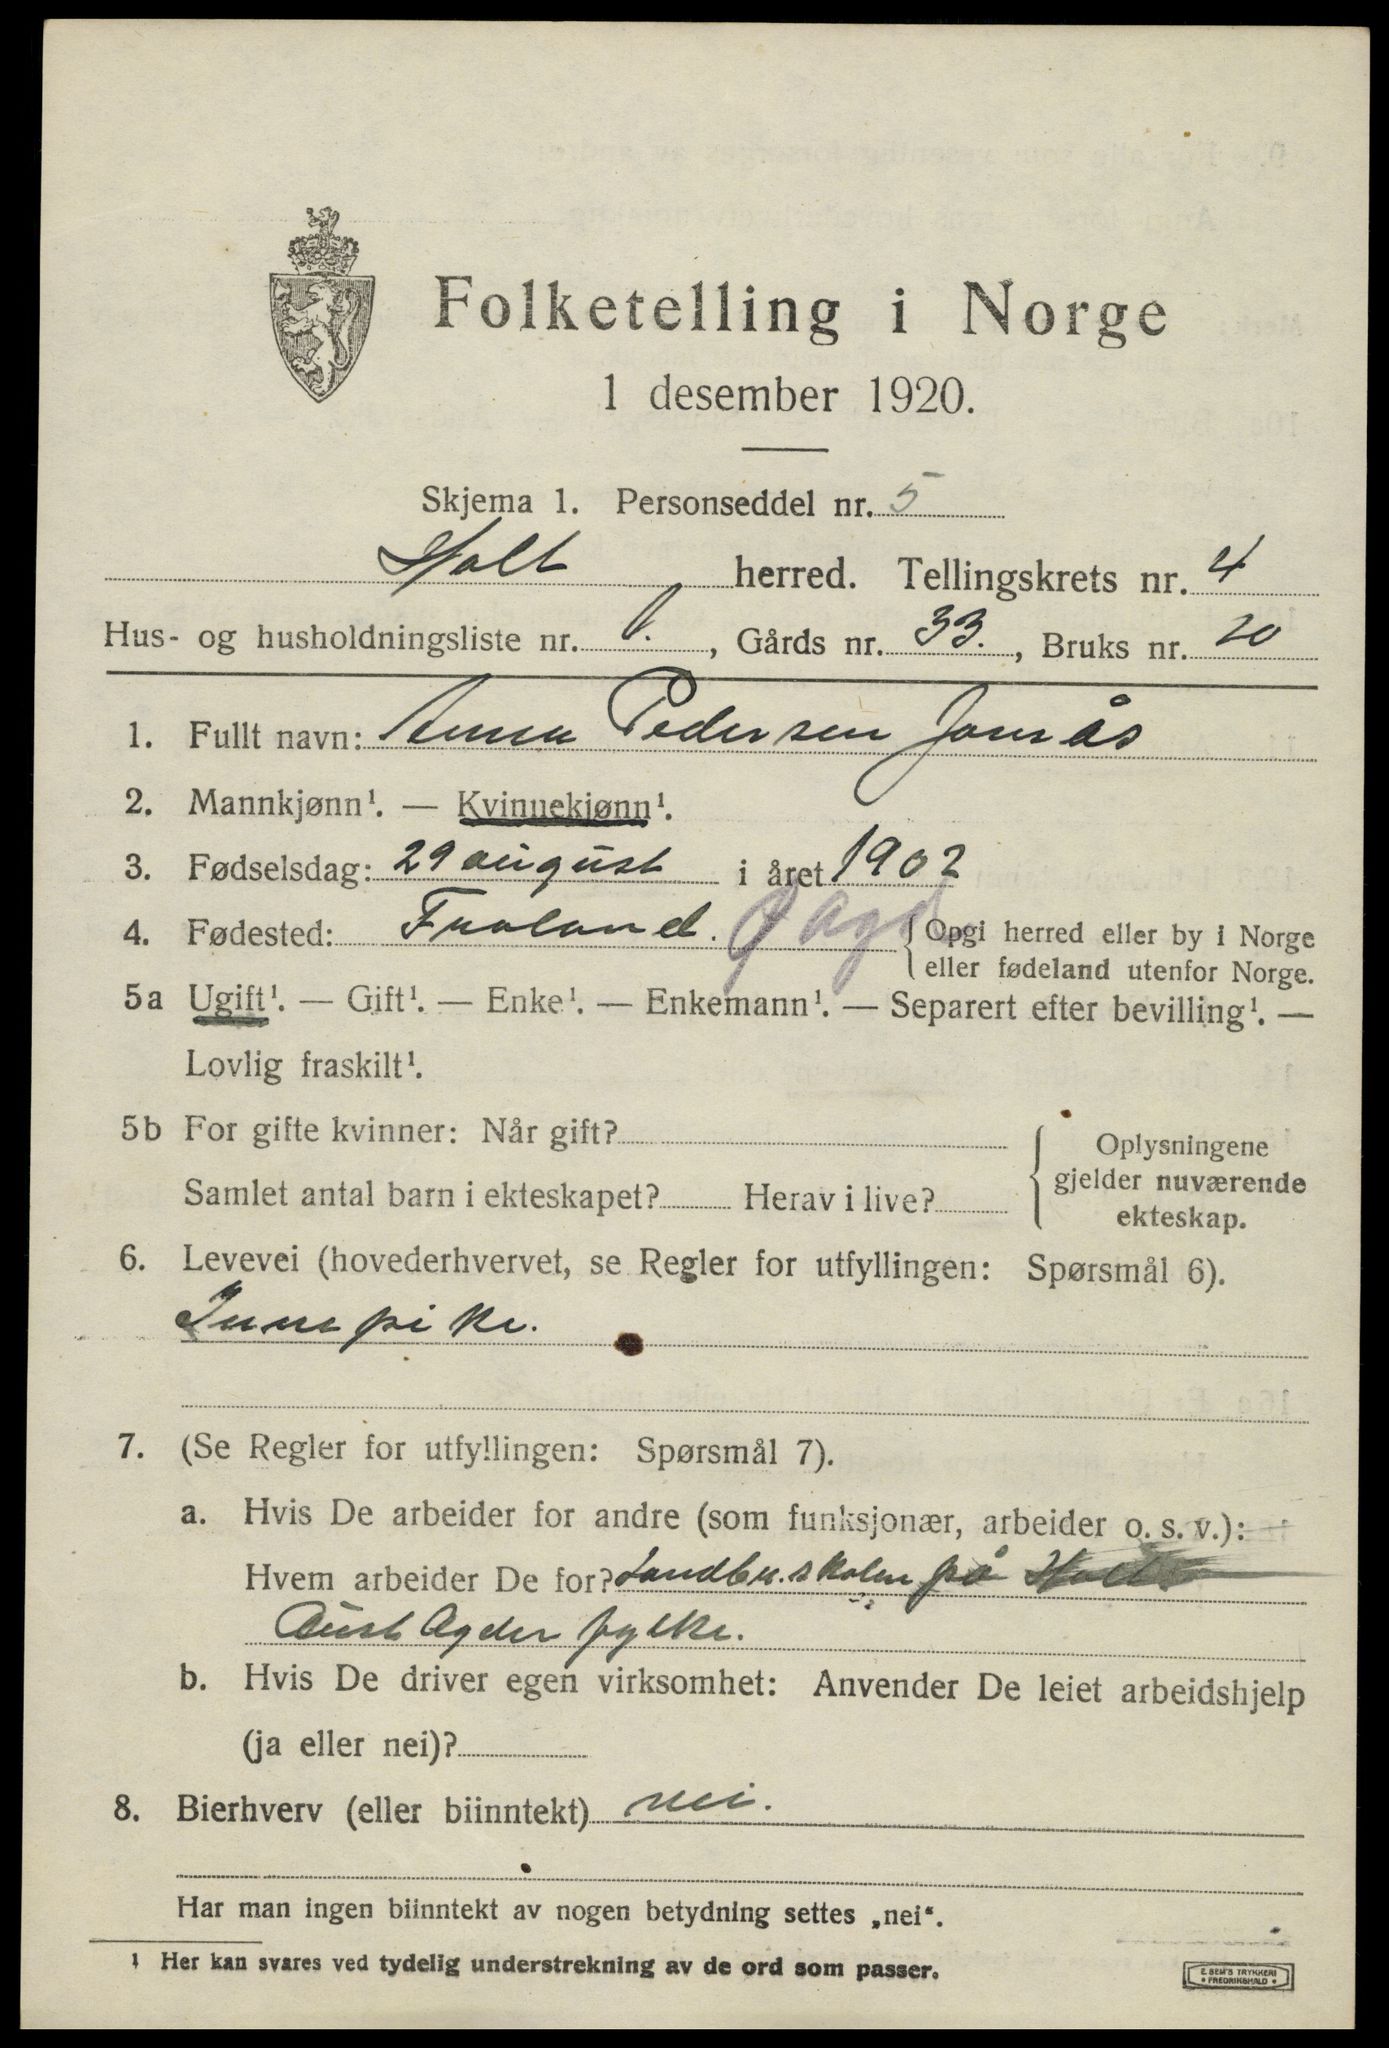 Folketelling i Norge
1 desember 1920.
Skjema 1. Personseddel nr. 5
Holt herred. Tellingskrets nr. 4
Hus- og husholdningsliste nr. 1., Gårds nr. 33., Bruks nr. 20
1. Fullt navn: Anna Pedersen Jomås
2. Mannkjønn¹. — Kvinnekjønn¹.
3. Fødselsdag: 29 august i året 1902
4. Fødested: Froland. { Opgi herred eller by i Norge
eller fødeland utenfor Norge.
5a Ugift¹. — Gift¹. — Enke¹. — Enkemann¹. — Separert efter bevilling¹. —
Lovlig fraskilt¹.
5b For gifte kvinner: Når gift?
Samlet antal barn i ekteskapet? Herav i live?
{ Oplysningene
gjelder nuværende
ekteskap.
6. Levevei (hovederhvervet, se Regler for utfyllingen: Spørsmål 6).
Innepike.
7. (Se Regler for utfyllingen: Spørsmål 7).
a. Hvis De arbeider for andre (som funksjonær, arbeider o. s. v.):
Hvem arbeider De for? Landbr.skolen på Holt
Aust Agder fylke.
b. Hvis De driver egen virksomhet: Anvender De leiet arbeidshjelp
(ja eller nei)?
8. Bierhverv (eller biinntekt) nei.
Har man ingen biinntekt av nogen betydning settes „nei“.
¹ Her kan svares ved tydelig understrekning av de ord som passer.
E. SEM'S TRYKKERI
• FREDRIKSHALD •